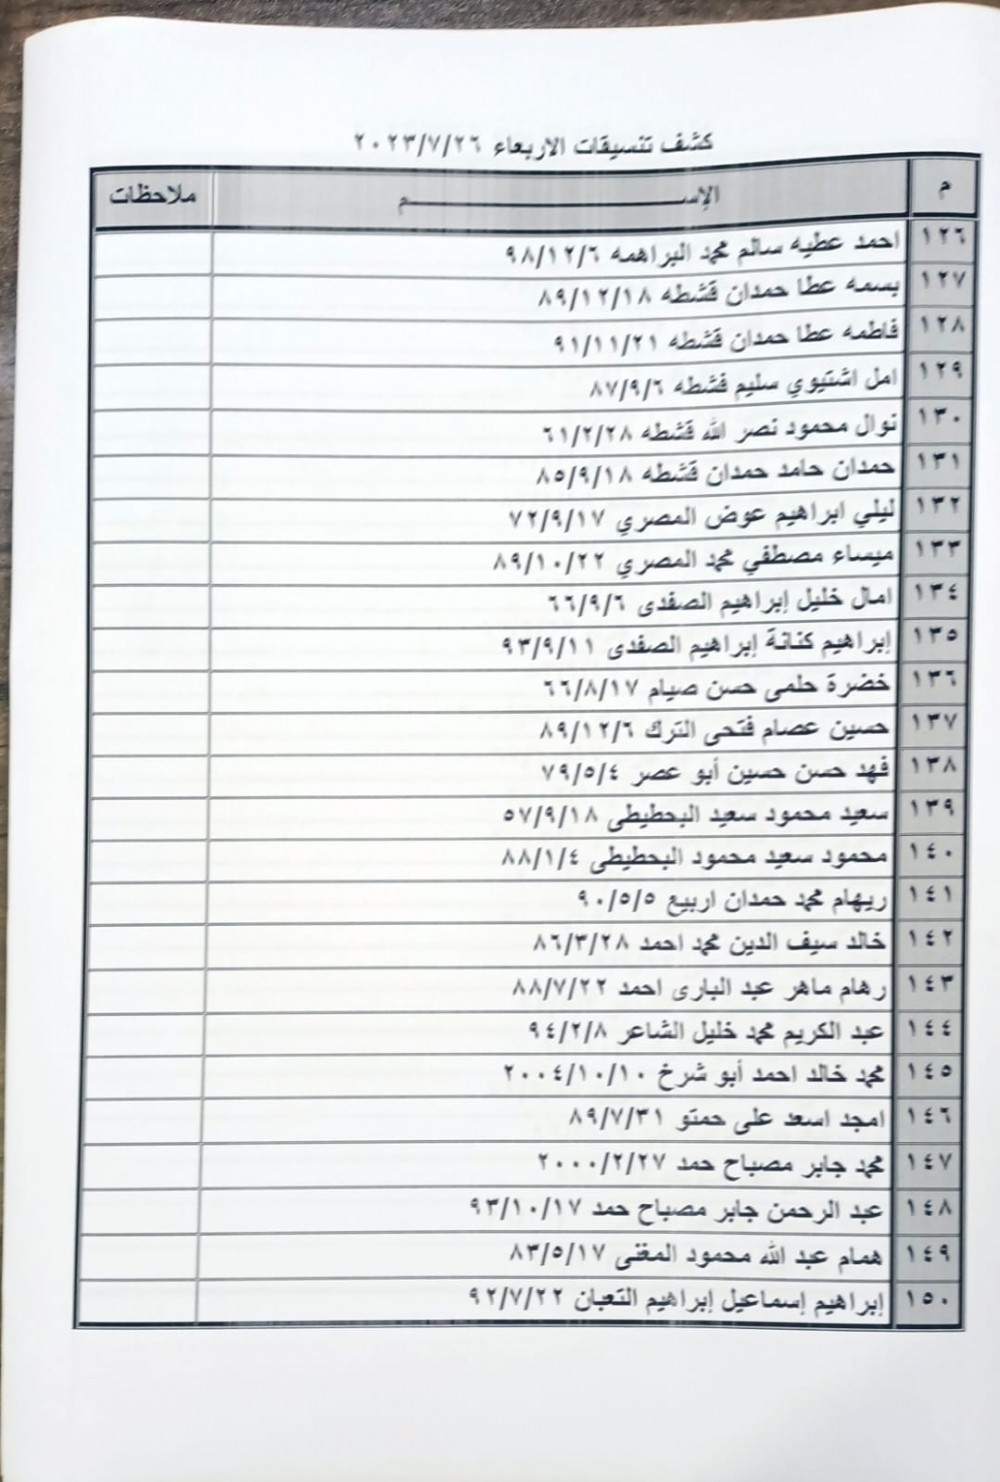 كشف تنسيقات الاربعاء ٢٠٢٣/٧/٢٦
م الإســـــــــــم ملاحظات
١٢٦ احمد عطيه سالم محمد البراهمه ٩٨/١٢/٦
١٢٧ بسمه عطا حمدان قشطه ٨٩/١٢/١٨
١٢٨ فاطمه عطا حمدان قشطه ٩١/١١/٢١
١٢٩ امل اشتيوي سليم قشطه ٨٧/٩/٦
١٣٠ نوال محمود نصر الله قشطه ٦١/٢/٢٨
١٣١ حمدان حامد حمدان قشطه ٨٥/٩/١٨
١٣٢ ليلي ابراهيم عوض المصري ٧٢/٩/١٧
١٣٣ ميساء مصطفي محمد المصري ٨٩/١٠/٢٢
١٣٤ امال خليل إبراهيم الصفدى ٦٦/٩/٦
١٣٥ إبراهيم كنانة إبراهيم الصفدى ٩٣/٩/١١
١٣٦ خضرة حلمى حسن صيام ٦٦/٨/١٧
١٣٧ حسين عصام فتحى الترك ٨٩/١٢/٦
١٣٨ فهد حسن حسين أبو عصر ٧٩/٥/٤
١٣٩ سعيد محمود سعيد البحطيطى ٥٧/٩/١٨
١٤٠ محمود سعيد محمود البحطيطى ٨٨/١/٤
١٤١ ريهام محمد حمدان اربيع ٩٠/٥/٥
١٤٢ خالد سيف الدين محمد احمد ٨٦/٣/٢٨
١٤٣ رهام ماهر عبد البارى احمد ٨٨/٧/٢٢
١٤٤ عبد الكريم محمد خليل الشاعر ٩٤/٢/٨
١٤٥ محمد خالد احمد أبو شرخ ٢٠٠٤/١٠/١٠
١٤٦ امجد اسعد على حمتو ٨٩/٧/٣١
١٤٧ محمد جابر مصباح حمد ٢٠٠٠/٢/٢٧
١٤٨ عبد الرحمن جابر مصباح حمد ٩٣/١٠/١٧
١٤٩ همام عبد الله محمود المغنى ٨٣/٥/١٧
١٥٠ إبراهيم إسماعيل إبراهيم التعبان ٩٢/٧/٢٢